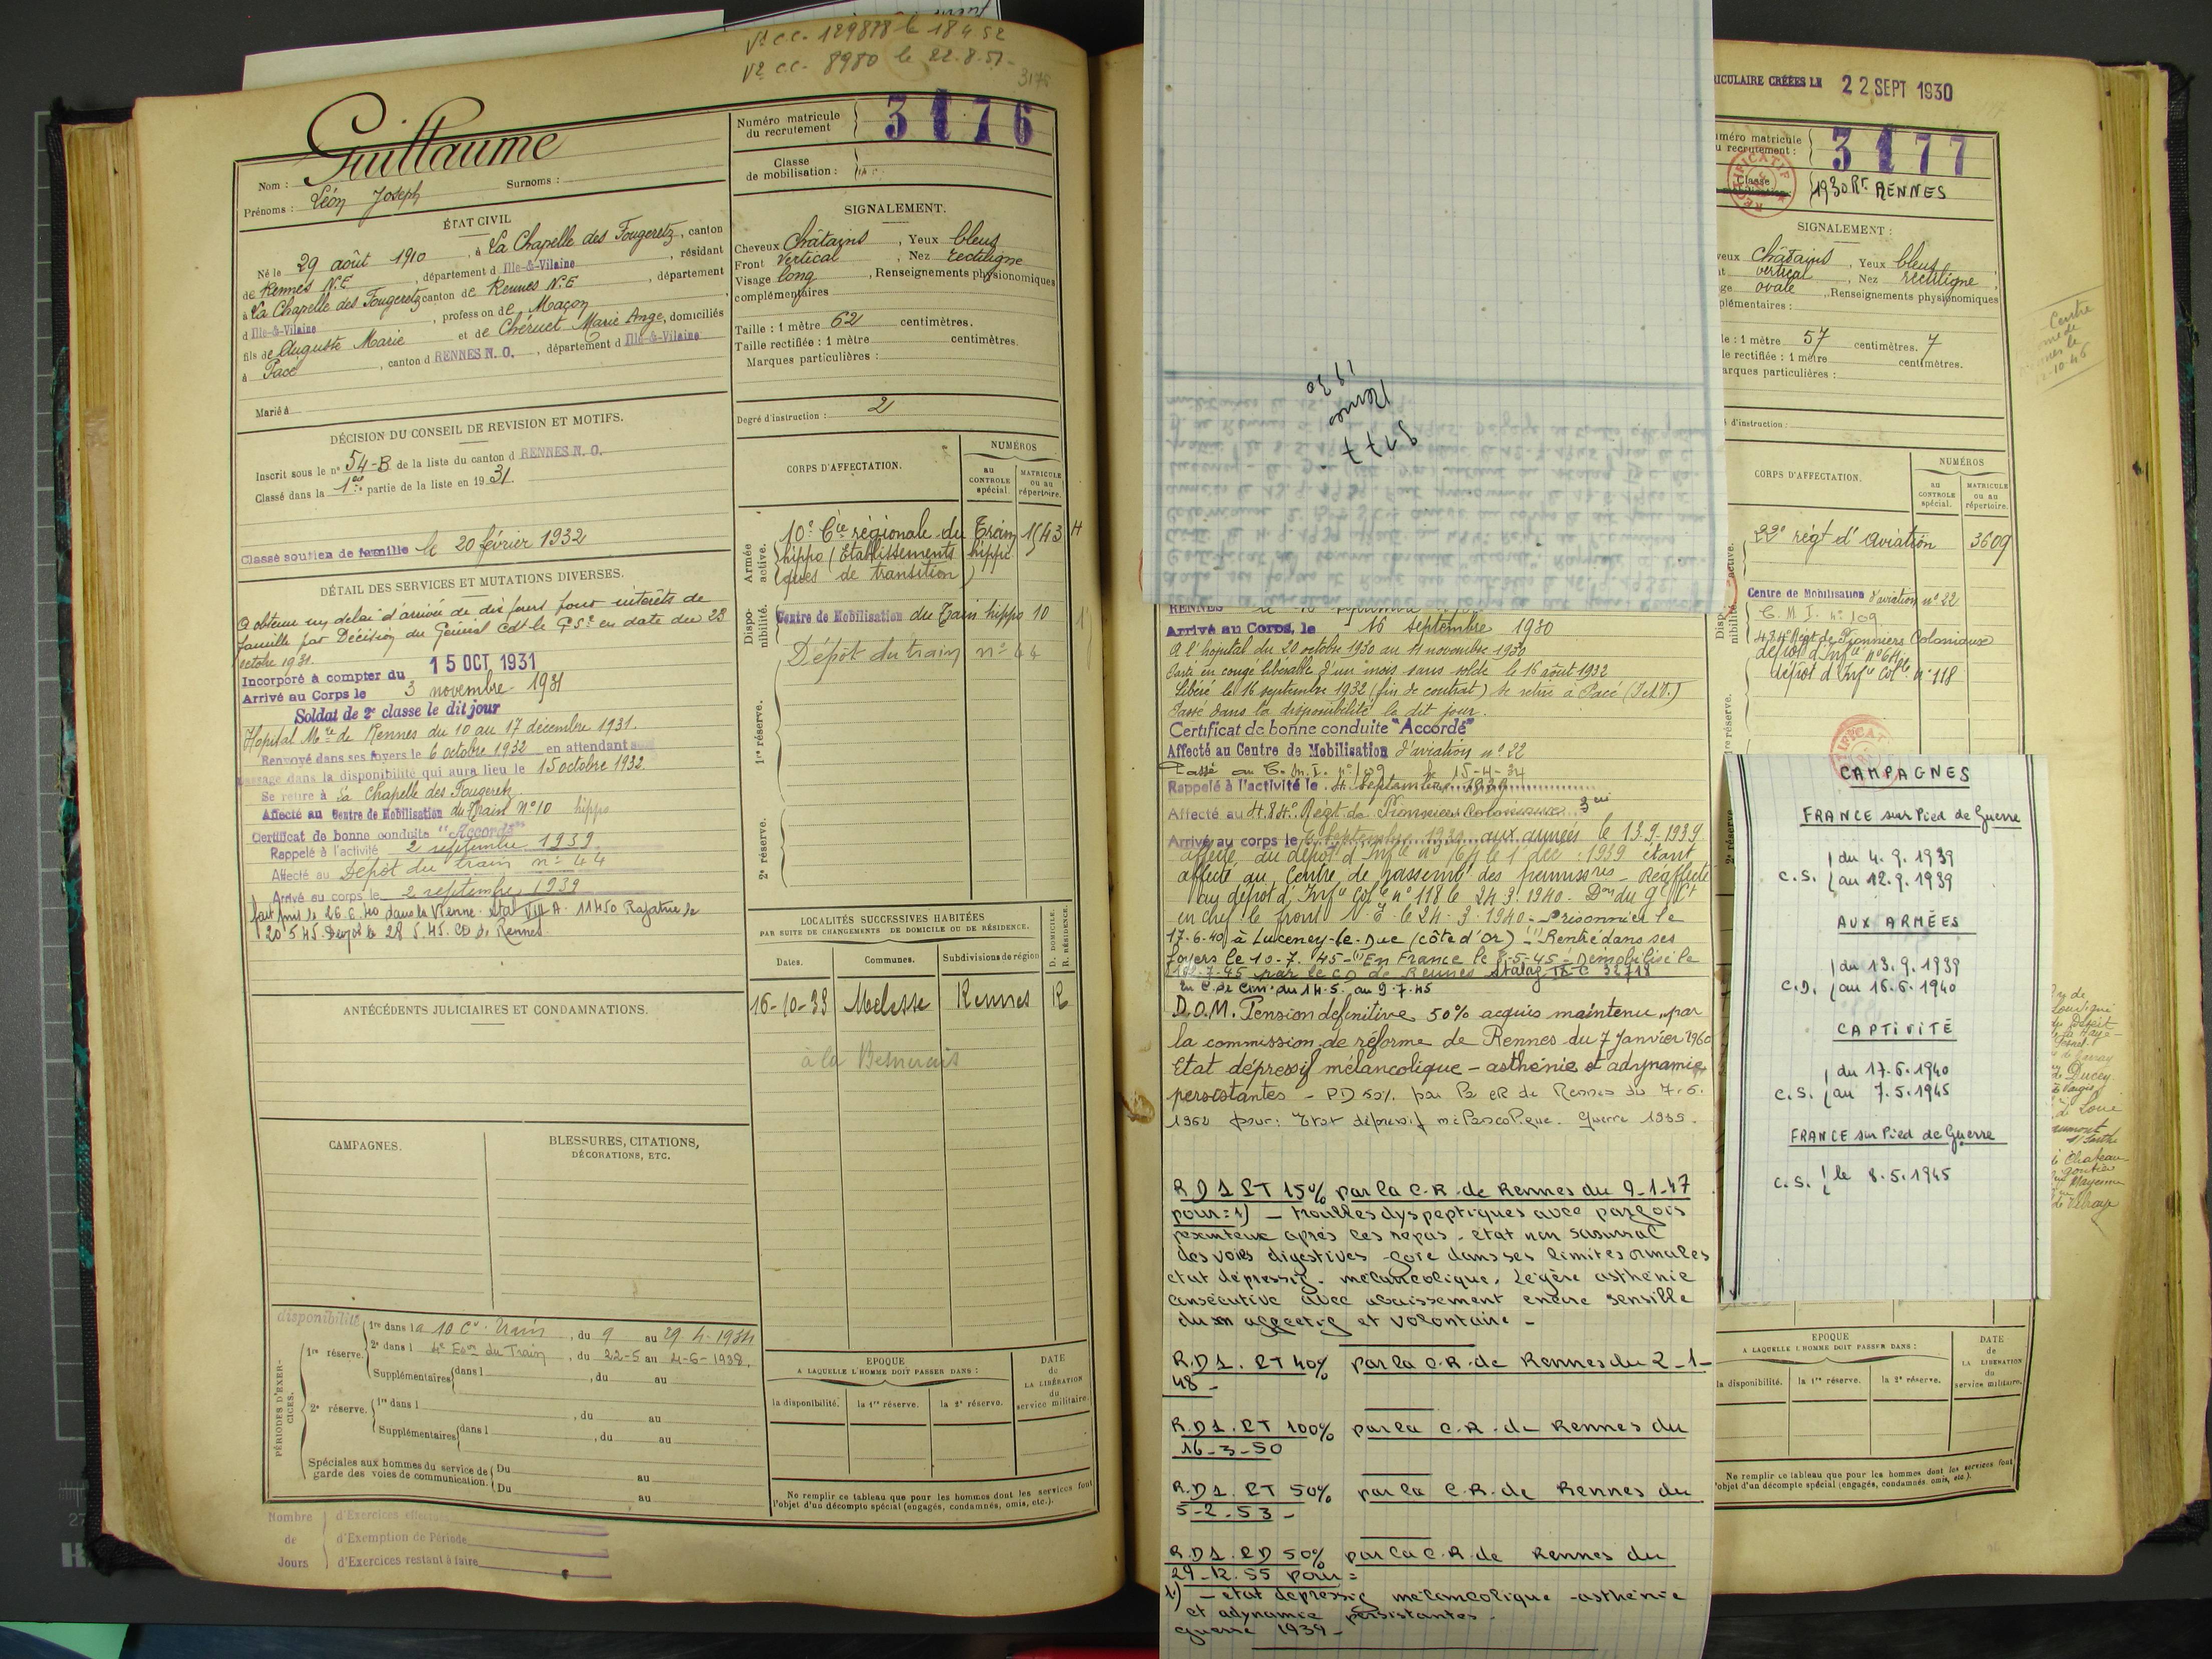 Vd CC. 129878 le 18 4 52
Vd CC. 8980 le 22.8.51-
3176
Nom : Guillaume
Prénoms : Léon Joseph Surnoms :
ÉTAT CIVIL
Né le 29 août 1910, à La Chapelle des Fougeretz, canton
de Rennes N.E, département d Ille-&-Vilaine, résidant
à La Chapelle des Fougeretz canton de Rennes N.E, département
d Ille-&-Vilaine, profession de Maçon
fils de Auguste Marie et de Chéruet Marie Ange, domiciliés
à Pacé, canton d RENNES N.O., département d Ille-&-Vilaine
Marié à
DÉCISION DU CONSEIL DE REVISION ET MOTIFS.
Inscrit sous le n° 54-B de la liste du canton d RENNES N.O.
Classé dans la 1ère partie de la liste en 1931.
Classé soutien de famille le 20 février 1932
DÉTAIL DES SERVICES ET MUTATIONS DIVERSES.
A obtenu un délai d'arrivée de dix jours pour intérêts de
famille par Décision du Général Cdt le en date du 23
octobre 1931.
Incorporé à compter du 15 OCT 1931
Arrivé au Corps le 3 novembre 1931
Soldat de 2e classe le dit jour
Hopital Mre de Rennes du 10 au 17 décembre 1931.
Renvoyé dans ses foyers le 6 octobre 1932 en attendant son
passage dans la disponibilité qui aura lieu le 15 octobre 1932.
Se retire à La Chapelle des Fougeretz.
Affecté au Centre de Mobilisation du Train N°10 hippo
Certificat de bonne conduite "Accordé"
Rappelé à l'activité 2 septembre 1939
Affecté au Dépôt du train n° 44
Arrivé au corps le 2 septembre 1939
fait pris le 26.6.40 dans la Vienne. Stal VII A. 11450 Rapatrié le
20 5 45. le 28 5.45. CD de Rennes.
ANTÉCÉDENTS JUDICIAIRES ET CONDAMNATIONS.
CAMPAGNES.
BLESSURES, CITATIONS,
DÉCORATIONS, ETC.
disponibilité
PÉRIODES D'EXERCICES.
1re réserve. 1re dans la 10 Cie Train, du 9 au 29-4-1934
2e dans l 4e Eon du Train, du 22-5 au 4-6-1938.
Supplémentaires dans l , du au
2e réserve. 1re dans l , du au
Supplémentaires dans l , du au
Spéciales aux hommes du service de garde des voies de communication. Du au
Du au
Nombre de Jours
d'Exercices effectués
d'Exemption de Période
d'Exercices restant à faire
Numéro matricule
du recrutement 3176
Classe
de mobilisation :
SIGNALEMENT.
Cheveux Châtains, Yeux bleus
Front Vertical, Nez rectiligne
Visage long, Renseignements physionomiques
complémentaires
Taille : 1 mètre 62 centimètres.
Taille rectifiée : 1 mètre centimètres.
Marques particulières :
Degré d'instruction : 2
CORPS D'AFFECTATION.
NUMÉROS
au CONTROLE spécial.
MATRICULE ou au répertoire.
Armée active.
10e Cie régionale du Train 1143
hippo (Etablissements hippi
ques de transition)
Disponibilité.
Centre de Mobilisation du Train hippo 10
Dépôt du train n° 44
1re réserve.
2e réserve.
LOCALITÉS SUCCESSIVES HABITÉES
PAR SUITE DE CHANGEMENTS DE DOMICILE OU DE RÉSIDENCE.
Dates. Communes. Subdivisions de région D. DOMICILE. R. RÉSIDENCE.
16-10-33 Melesse Rennes R
à la
EPOQUE
A LAQUELLE L'HOMME DOIT PASSER DANS :
la disponibilité. la 1re réserve. la 2e réserve.
DATE
de
LA LIBÉRATION
du
service militaire.
Ne remplir ce tableau que pour les hommes dont les services font
l'objet d'un décompte spécial (engagés, condamnés, omis, etc.).
3177
Rennes
1930
RENNES
Arrivé au Corps, le 16 septembre 1930
A l'hopital du 20 octobre 1930 au 4 novembre 1930
Parti en congé libérable d'un mois sans solde le 16 août 1932
Libéré le 16 septembre 1932 (fin de contrat) se retire à Pacé (I.&V.)
Passé dans la disponibilité le dit jour.
Certificat de bonne conduite "Accordé"
Affecté au Centre de Mobilisation d'aviation n° 22
Passé au C.M.I. n° 109 le 15-4-34
Rappelé à l'activité le 4 septembre 1939
Affecté au 484e Régt de Pionniers Coloniaux
Arrivé au corps le septembre 1939 aux armées le 13.9.1939
affecté au dépôt d'Infie n° 64 le 1er déc. 1939 étant
affecté au Centre de passemt des permissres - Réaffecté
au dépôt d'Infie Colle n° 118 le 24 3.1940. Don du Gl Ct
en chef le front N.E. le 24.3.1940 - Prisonnier le
17-6-40 à Lucenay-le-Duc (côte d'or) - Rentré dans ses
foyers le 10-7.45 - (1) En France le 8-5-45 - Démobilisé le
-7-45 par le CD de Rennes Stalag IX C 32718
En C. de Con. du 14.5. au 9.7.45
D.O.M. Pension définitive 50% acquis maintenu par
la commission de réforme de Rennes du 7 Janvier 1960
Etat dépressif mélancolique - asthénie et adynamie
persistantes - PD 50% par la CR de Rennes du 7.6.
1962 pour : Etat dépressif mélancolique. Guerre 1939.
R.D1 PT 15% par la C.R. de Rennes du 9-1-47
pour : 1) - troubles dyspeptiques avec parfois
pesanteur après les repas - état non saburral
des voies digestives - foie dans ses limites ormales
état dépressif - mélancolique. Légère asthénie
consécutive avec abaissement encore sensible
du affectif et volontaire -
R.D1. PT 40% par la C.R. de Rennes du 2-1-
48 -
R.D1. PT 100% par la C.R. de Rennes du
16-3-50
R.D1. PT 50% par la C.R. de Rennes du
5-2-53 -
R.D1. PD 50% par la C.R. de Rennes du
29-12.55 pour :
1) - état dépressif mélancolique - asthénie
et adynamie persistantes -
guerre 1939 -
RICULAIRE CRÉÉES LE 22 SEPT 1930
uméro matricule
u recrutement : 3177
RECTIFICATIF
Classe 1930 Rt RENNES
SIGNALEMENT :
veux Châtains, Yeux bleus
vertical, Nez rectiligne
ge ovale, Renseignements physionomiques
plémentaires :
le : 1 mètre 57 centimètres. 7
le rectifiée : 1 mètre centimètres.
arques particulières :
d'instruction :
CORPS D'AFFECTATION.
NUMÉROS
au CONTROLE spécial.
MATRICULE ou au répertoire.
22e régt d'aviation 3609
Centre de Mobilisation d'aviation n° 22
C.M.I. n° 109
484e Régt de Pionniers Coloniaux
dépôt d'Infie n° 64
dépôt d'Infie Colle n° 118
1re réserve.
2e réserve
CAMPAGNES
FRANCE sur Pied de Guerre
C.S. du 4.9.1939
au 12.9.1939
AUX ARMÉES
C.D. du 13.9.1939
au 16.6.1940
CAPTIVITÉ
C.S. du 17.6.1940
au 7.5.1945
FRANCE sur Pied de Guerre
C.S. le 8.5.1945
EPOQUE
A LAQUELLE L'HOMME DOIT PASSER DANS :
la disponibilité. la 1re réserve. la 2e réserve.
DATE
de
LA LIBÉRATION
du
service militaire.
Ne remplir ce tableau que pour les hommes dont les services font
l'objet d'un décompte spécial (engagés, condamnés, omis, etc.).
Centre